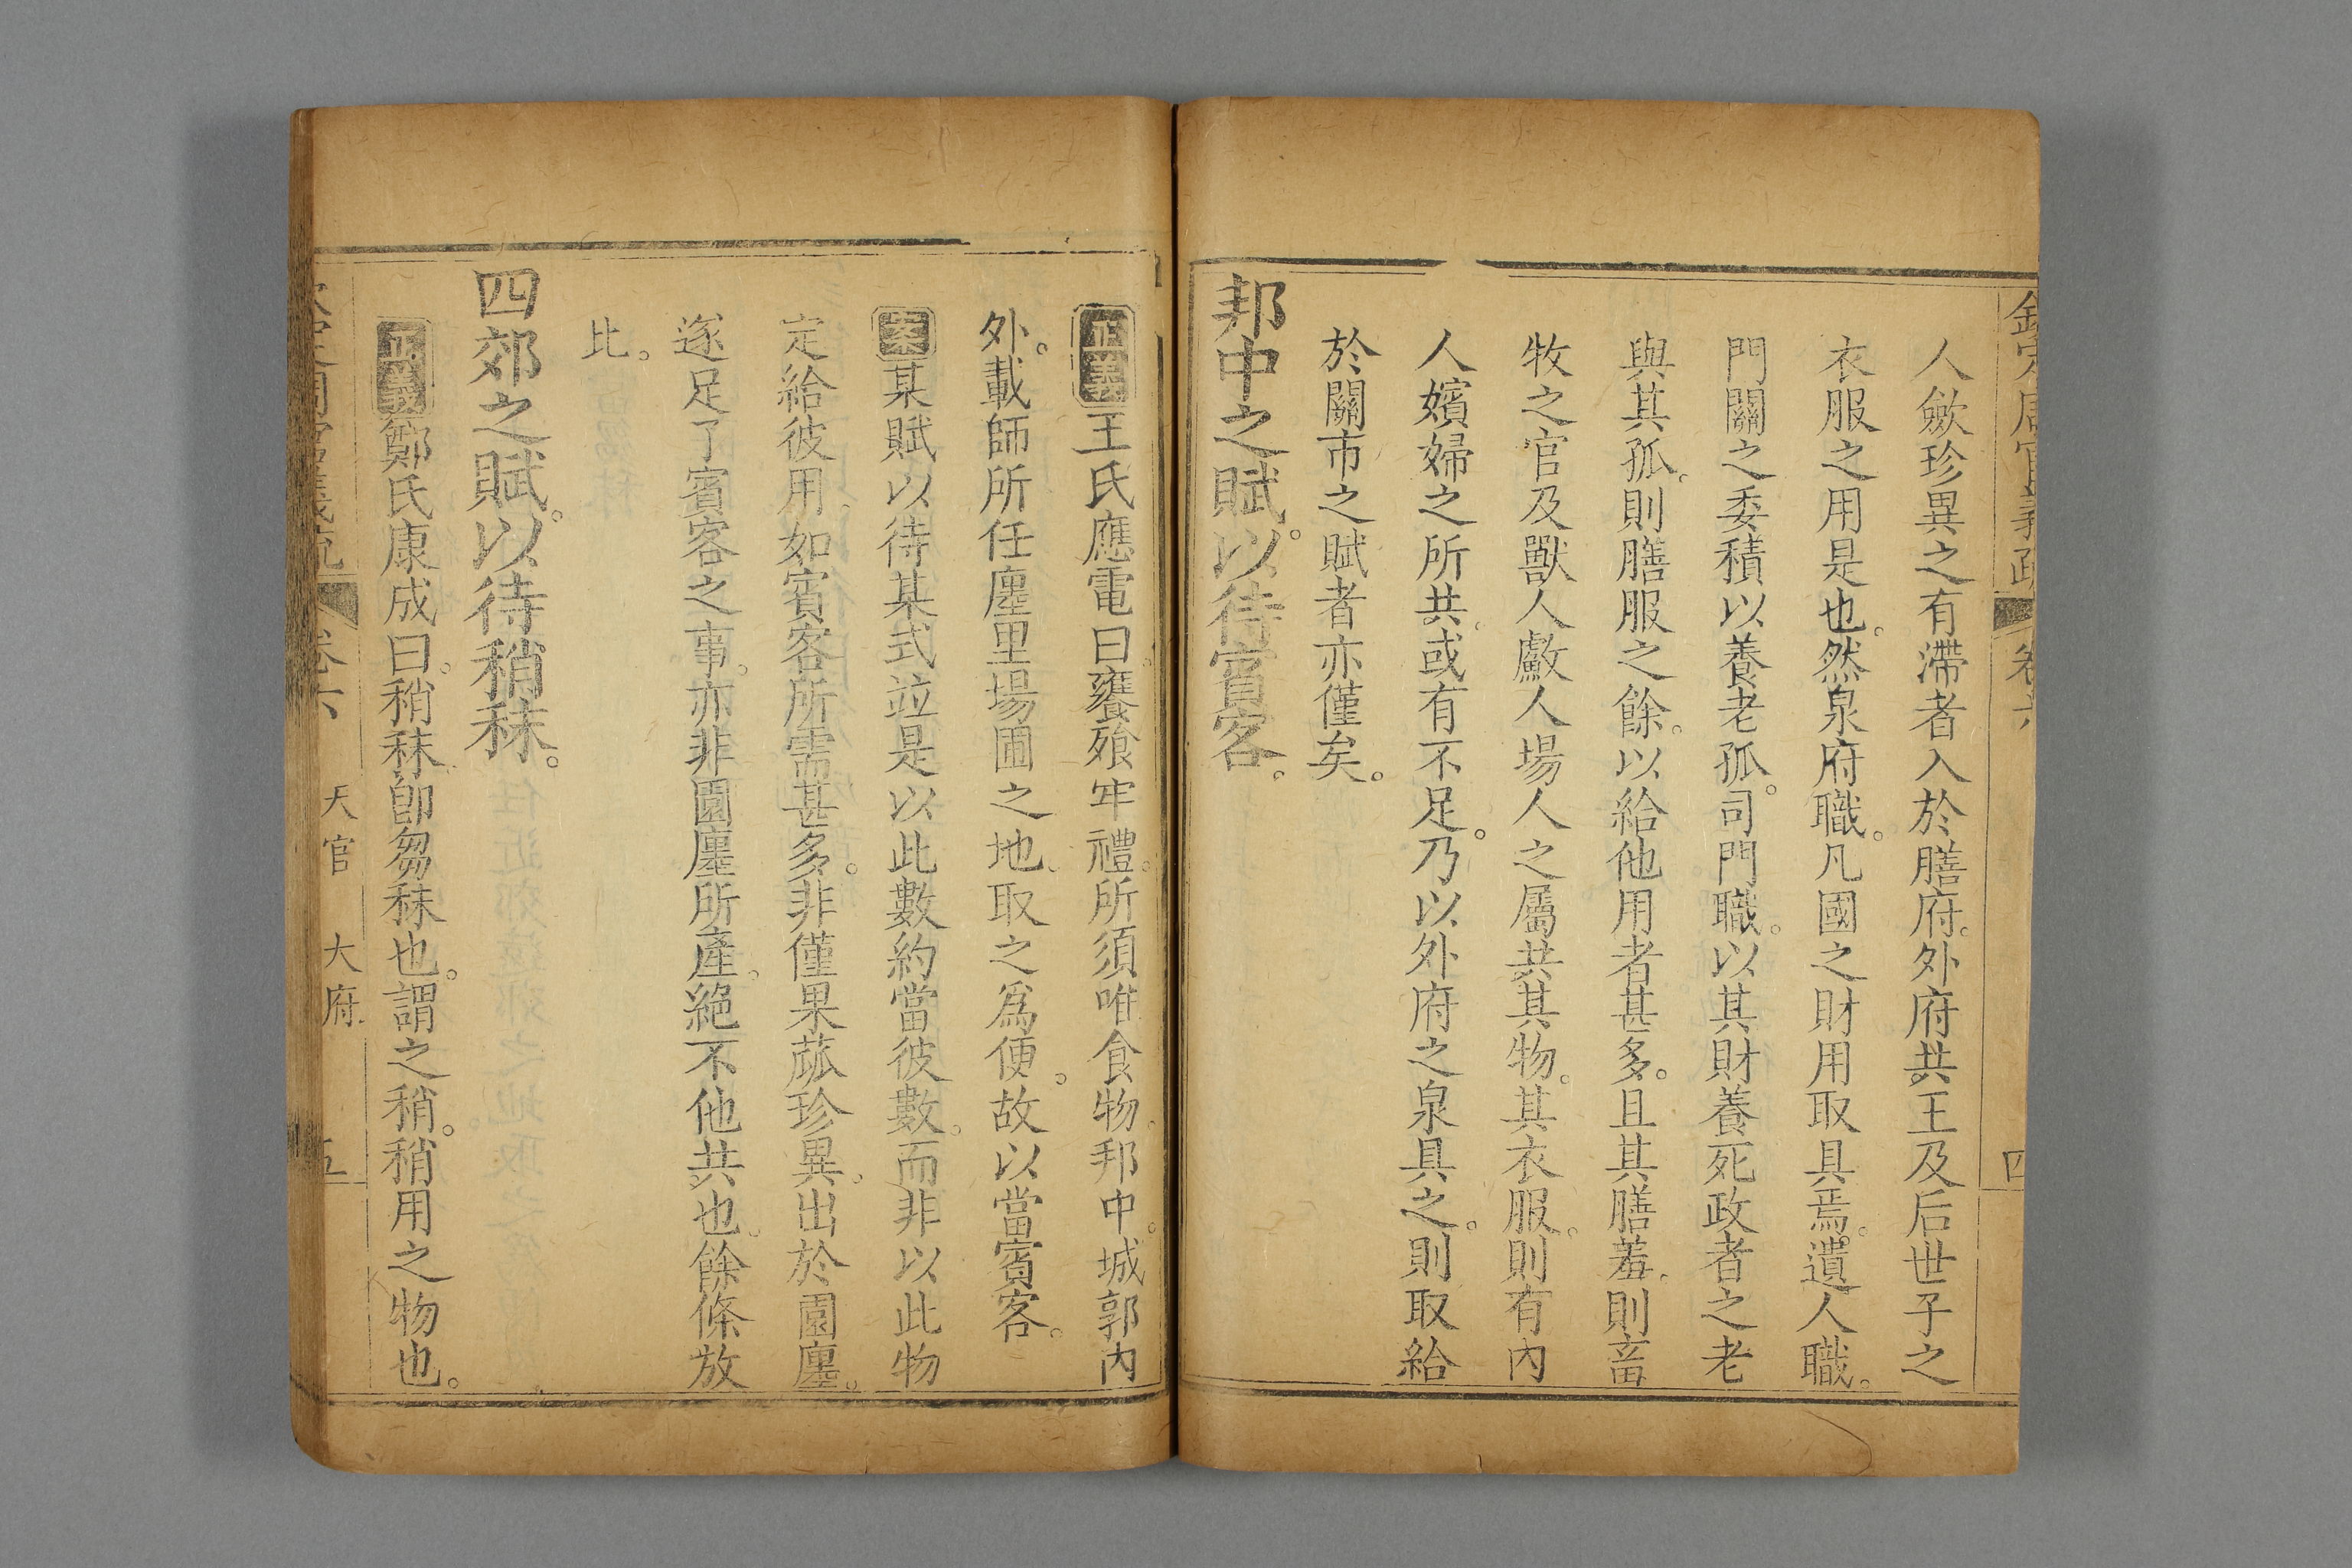 欽定周官義疏 卷六 四
人斂珍異之有滯者入於膳府。外府共王及后世子之
衣服之用是也。然泉府職。凡國之財用取具焉。遺人職。
門關之委積以養老孤。司門職。以其財養死政者之老
與其孤。則膳服之餘。以給他用者甚多。且其膳羞。則畜
牧之官及獸人䱷人場人之屬共其物。其衣服。則有內
人嬪婦之所共。或有不足。乃以外府之泉具之。則取給
於關市之賦者亦僅矣。
邦中之賦。以待賓客。
正義王氏應電曰。饔飧牢禮。所須唯食物。邦中。城郭內
外。載師所任廛里場圃之地。取之為便。故以當賓客。
案某賦以待某式竝是以此數約當彼數。而非以此物
定給彼用。如賓客所需甚多。非僅果蓏珍異。出於園廛。
遂足了賓客之事。亦非園廛所產。絕不他共也。餘條放
比。
四郊之賦。以待稍秣。
正義鄭氏康成曰。稍秣。卽芻秣也。謂之稍。稍用之物也。
欽定周官義疏 卷六 天官 大府 五